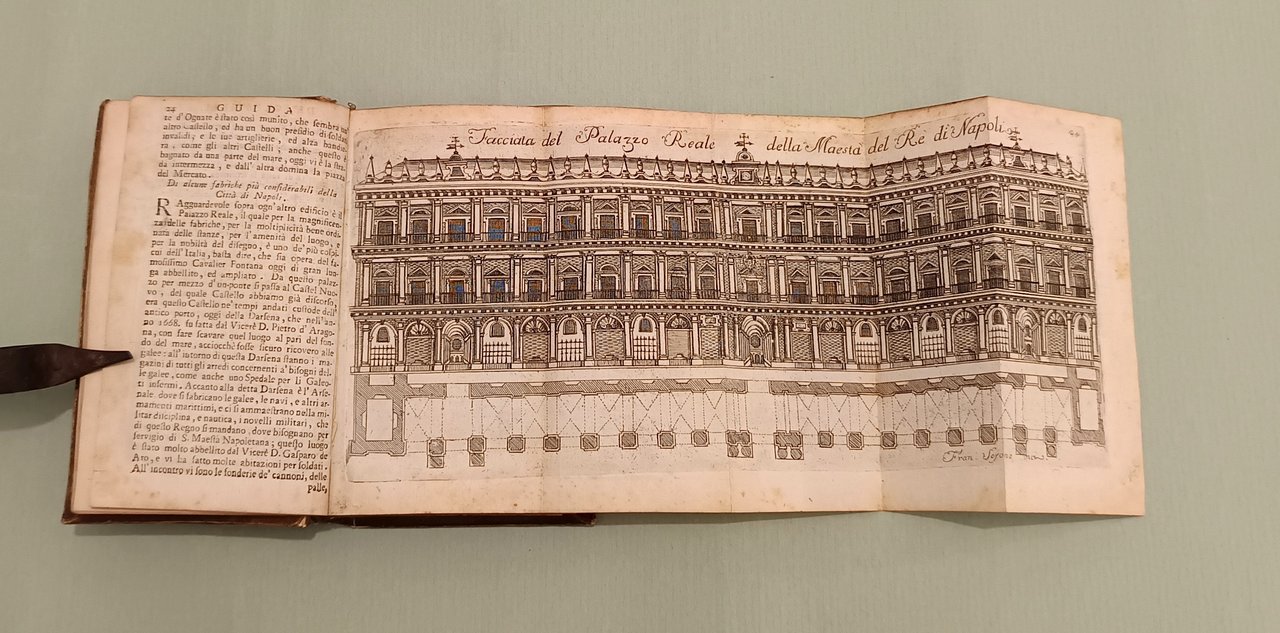 24 GUIDA
te d'Ognate è stato così munito, che sembra un
altro Castello, ed ha un buon presidio di soldati
invalidi, e le sue artiglierie, ed alza bandie-
ra, come gli altri Castelli; anche questo è
bagnato da una parte del mare, oggi vi è la stra-
da intermezza, e dall'altra domina la piazza
del Mercato.
Di alcune fabriche più considerabili della
Città di Napoli.
RAgguardevole sopra ogn'altro edificio è il
Palazzo Reale, il quale per la magnificen-
za delle fabriche, per la moltiplicità bene ordi-
nata delle stanze, per l'amenità del luogo, e
per la nobiltà del disegno, è uno de' più cospi-
cui dell'Italia, basta dire, che sia opera del fa-
mosissimo Cavalier Fontana oggi di gran lun-
ga abbellito, ed ampliato. Da questo palaz-
zo per mezzo d'un ponte si passa al Castel Nuo-
vo, del quale Castello abbiamo già discorso,
era questo Castello ne' tempi andati custode dell'
antico porto, oggi della Darsena, che nell'an-
no 1668. fu fatta dal Vicerè D. Pietro d'Arago-
na, con fare scavare quel luogo al pari del fon-
do del mare, acciocchè fosse sicuro ricovero alle
galee: all'intorno di questa Darsena stanno i ma-
gazini di tutti gli arredi concernenti a' bisogni del-
le galee, come anche uno Spedale per li Galeo-
ti infermi. Accanto alla detta Darsena è l'Arse-
nale dove si fabricano le galee, le navi, e altri ar-
mamenti marittimi, e ci si ammaestrano nella mi-
litar disciplina, e nautica, i novelli militari, che
di questo Regno si mandano, dove bisognano per
servigio di S. Maestà Napoletana; questo luogo
è stato molto abbellito dal Vicerè D. Gasparo de
Aro, e vi ha fatto molte abitazioni per soldati.
All'incontro vi sono le fonderie de' cannoni, delle
palle,
Facciata del Palazzo Reale della Maestà del Re di Napoli
Fran.